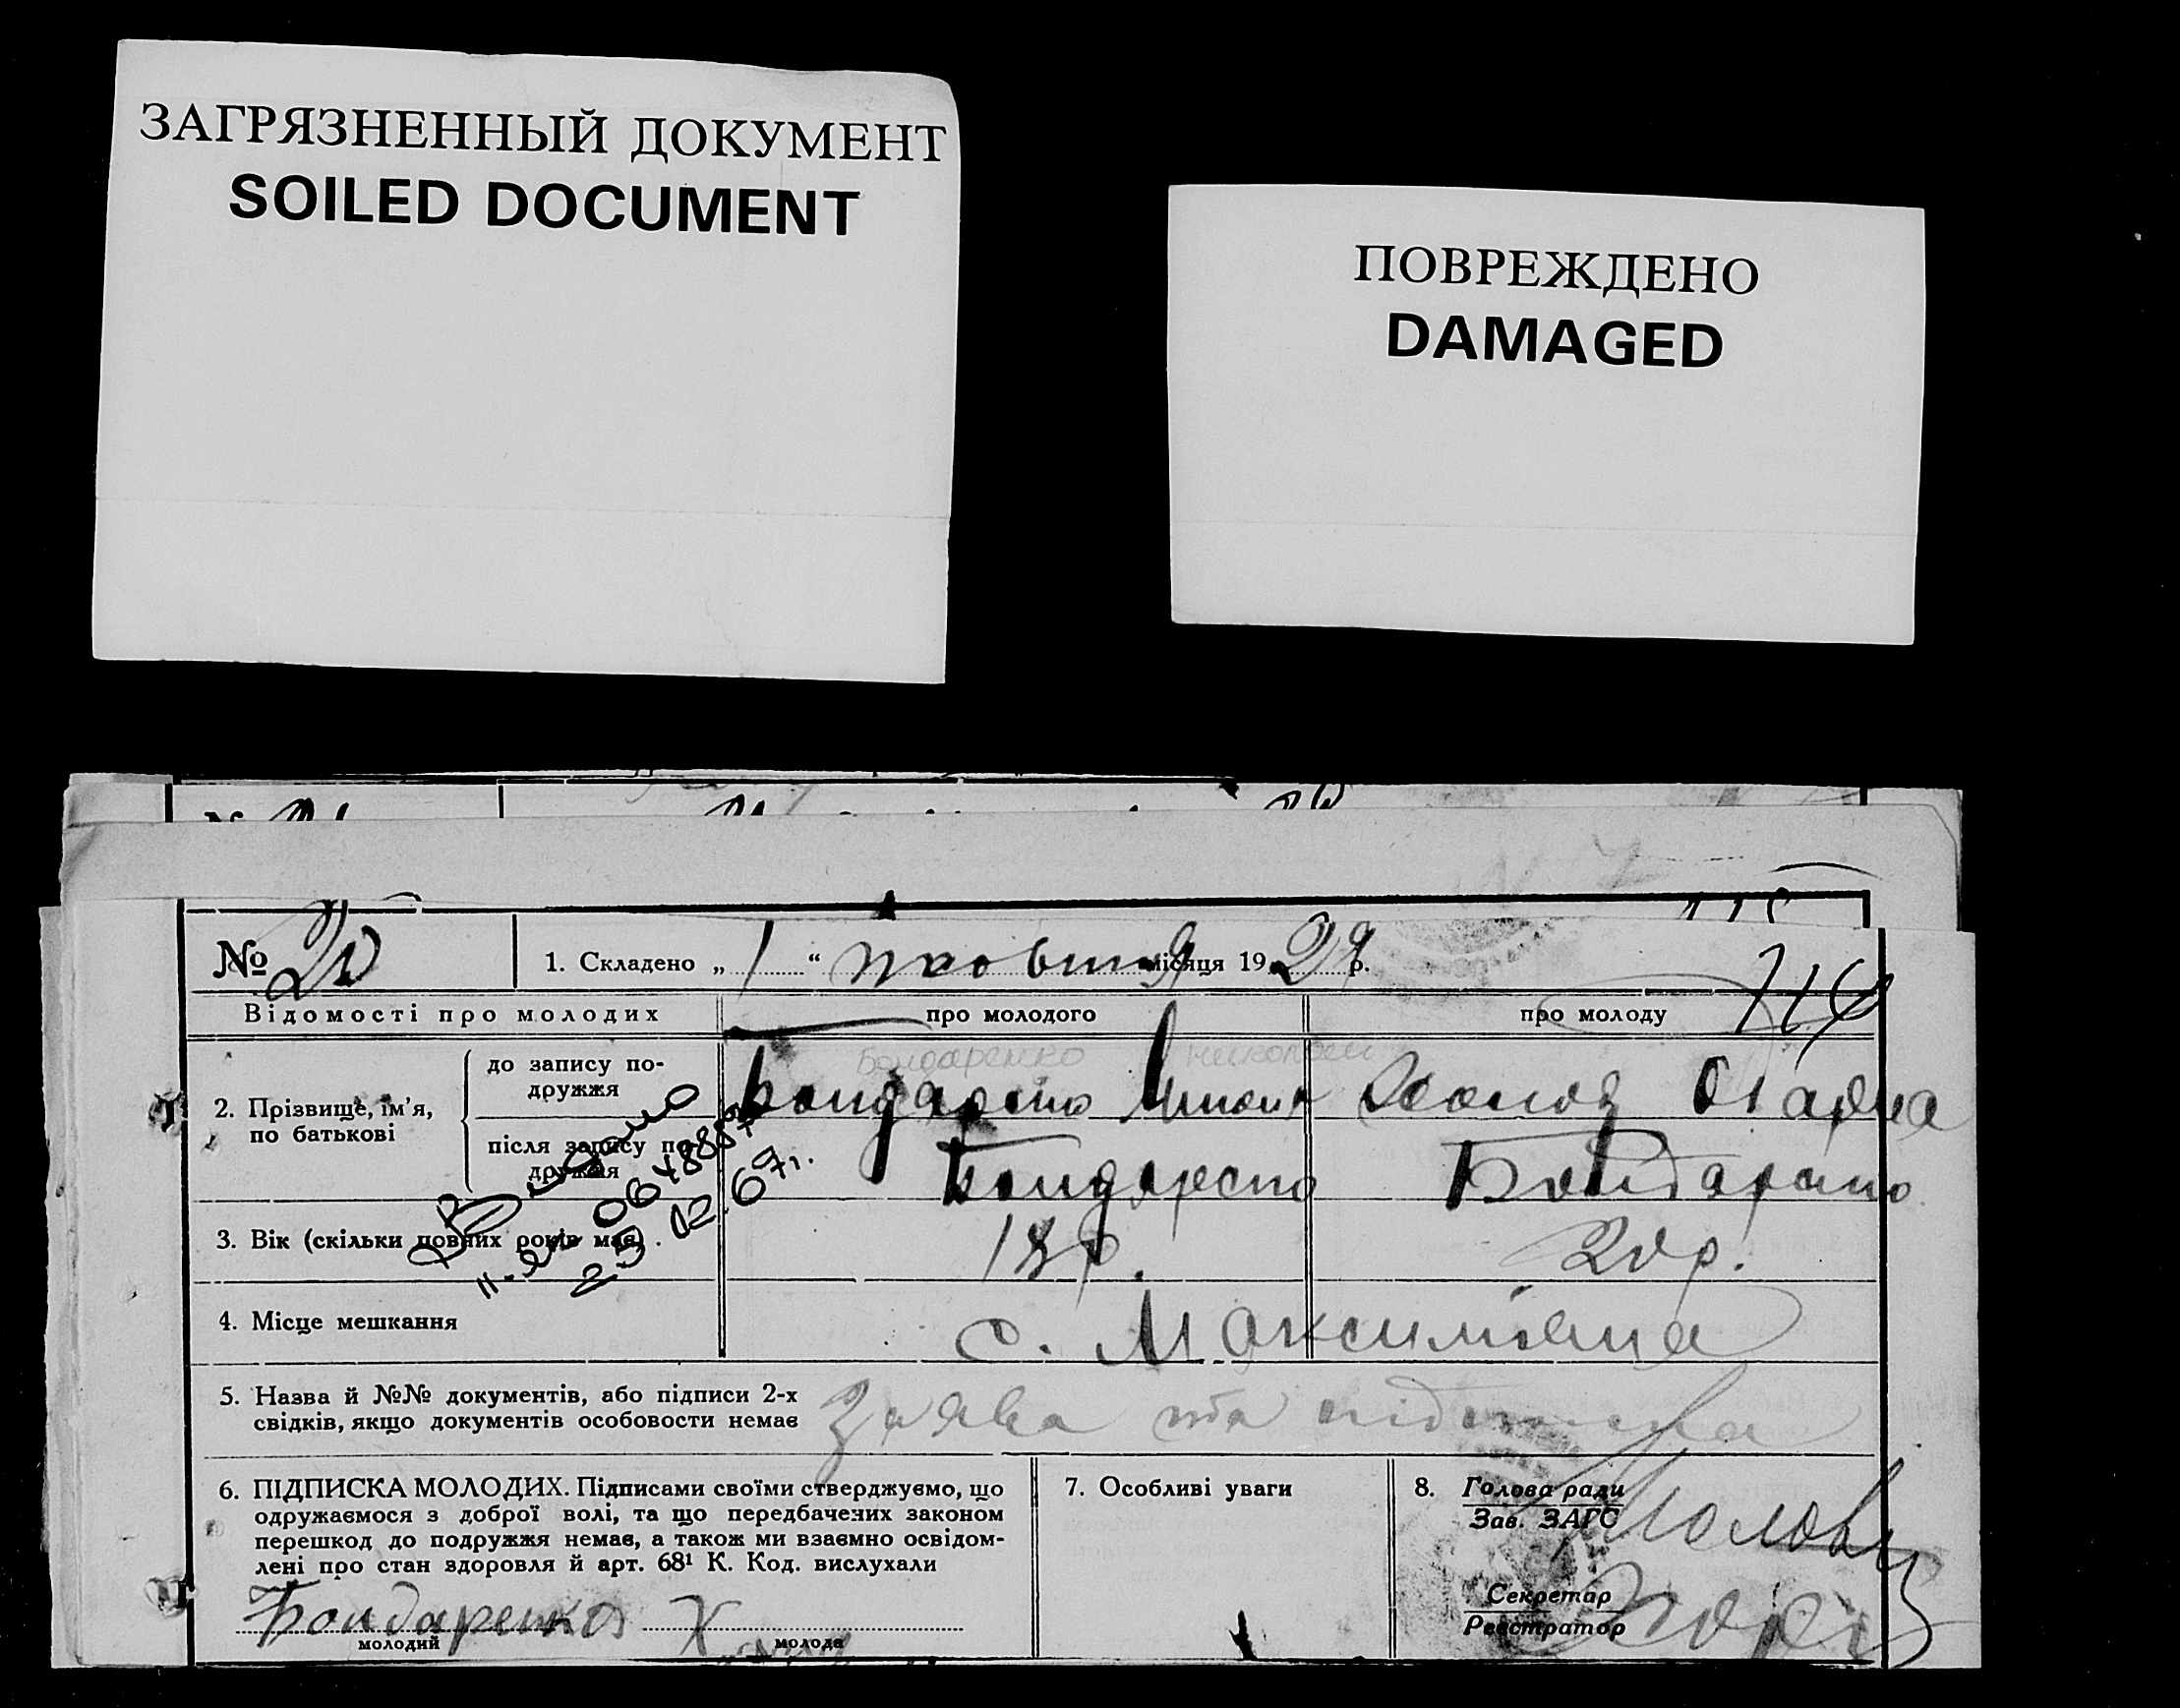 ЗАГРЯЗНЕННЫЙ ДОКУМЕНТ
SOILED DOCUMENT
ПОВРЕЖДЕНО
DAMAGED
№ 20
1. Складено „ 1 “ жовтня місяця 19 29 р.
Відомості про молодих
про молодого
про молоду
2. Прізвище, ім'я, по батькові
до запису по-
дружжя
Бондаренко Николай
Бондаренко
після запису по-
дружжя
Бондаренко
Бондаренко
25 12.67г.
3. Вік (скільки повних років має) .
18 р.
20 р.
4. Місце мешкання
с. Максим
5. Назва й №№ документів, або підписи 2-х
свідків, якщо документів особовости немає
Заява та підписка
6. ПІДПИСКА МОЛОДИХ. Підписами своїми стверджуємо, що
одружаємося з доброї волі, та що передбачених законом
перешкод до подружжя немає, а також ми взаємно освідом-
лені про стан здоровля й арт. 68¹ К. Код. вислухали
Бондаренко
молодий
молода
7. Особливі уваги
8. Голова ради
Зав. ЗАГС
Секретар
Реєстратор